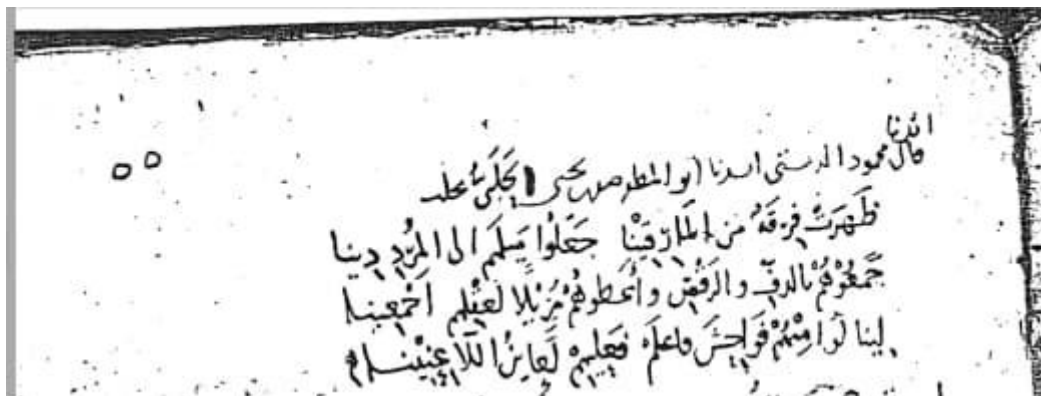 انشدنا
قال محمود الدشتي انشدنا ابو المظفر بن يحيى
ظَهَرَتْ فِرقَةُ من المَارِقِيْنا جَعَلُوا مَيلَهم الى المُرْدِ دِينا
جَمَعُوْهُمْ بالدفِّ والرَقْصِ واَعْطوهُمْ لعَقْلِهم اَجْمَعِينا
لينالوا مِنْهُمْ فَوَاحِشَ فعَلَيهِمْ لَعَايِنُ اللاعِنِيْنا
٥٥